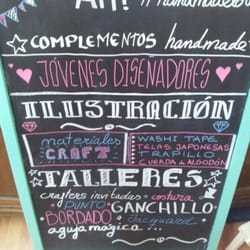 COMPLEMENTOS handmade
JÓVENES DISEÑADORES
ILUSTRACIÓN
materiales
CRAFT
WASHI TAPE
TELAS JAPONESAS
TRAPILLO
CUERDA de ALGODÓN
TALLERES
crafters invitadas + costura
PUNTO GANCHILLO
BORDADO Jacquard
aguja mágica...